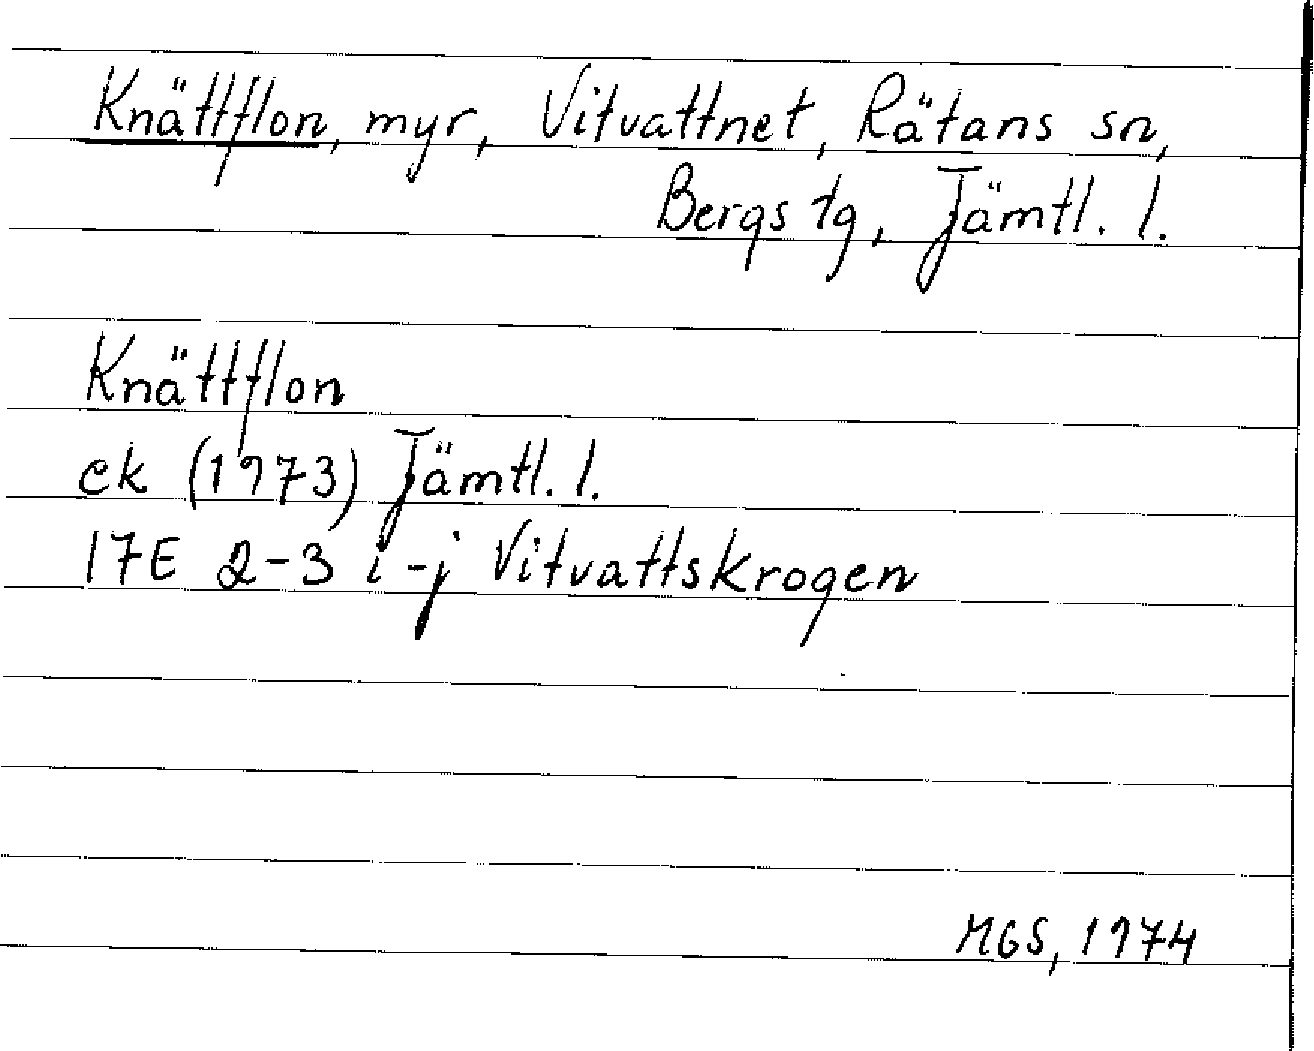 Knättflon, myr, Vitvattnet, Rätans sn,
Bergs tg, Jämtl. l.
Knättflon
ek (1973) Jämtl. l.
17E 2-3 i-j Vitvattskrogen
MGS, 1974